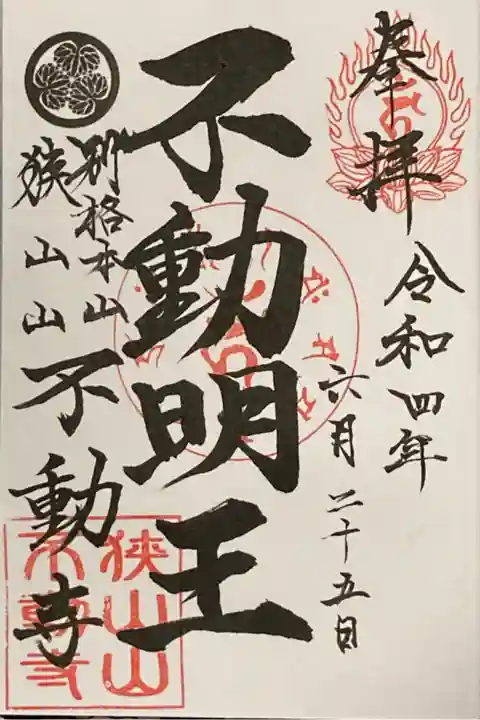 奉拝
令和四年
六月二十五日
不動明王
別格本山
狭山山不動寺
狭山山
不動寺